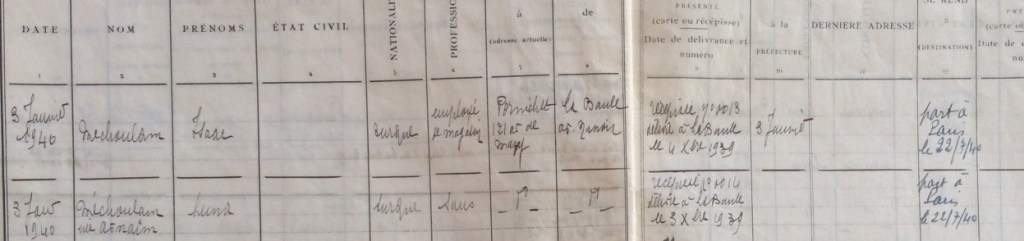 DATE
NOM
PRÉNOMS
ÉTAT CIVIL
NATIONALITÉ
PROFESSION
à
(adresse actuelle)
de
PRÉSENTÉ
(carte ou récépissé)
Date de délivrance et
numéro
à la
PRÉFECTURE
DERNIÈRE ADRESSE
SE REND
à
(DESTINATION)
PRÉSE
(carte ou
Date de d
nu
1
2
3
4
5
6
7
8
9
10
3 Janvier
1940
Mechoulam
Isaac
turque
employé
de magasin
Pornichet
121 av de
mazy
La Baule
av.
récépissé n° 0013
délivré à La Baule
le 4 Xbre 1939
3 Janvier
part à
Paris
le 22/7/40
3 Janv
1940
Méchoulam
née
turque
sans
_ d° _
_ d° _
récépissé n° 0014
délivré à La Baule
le 3 Xbre 1939
part à
Paris
le 22/7/40